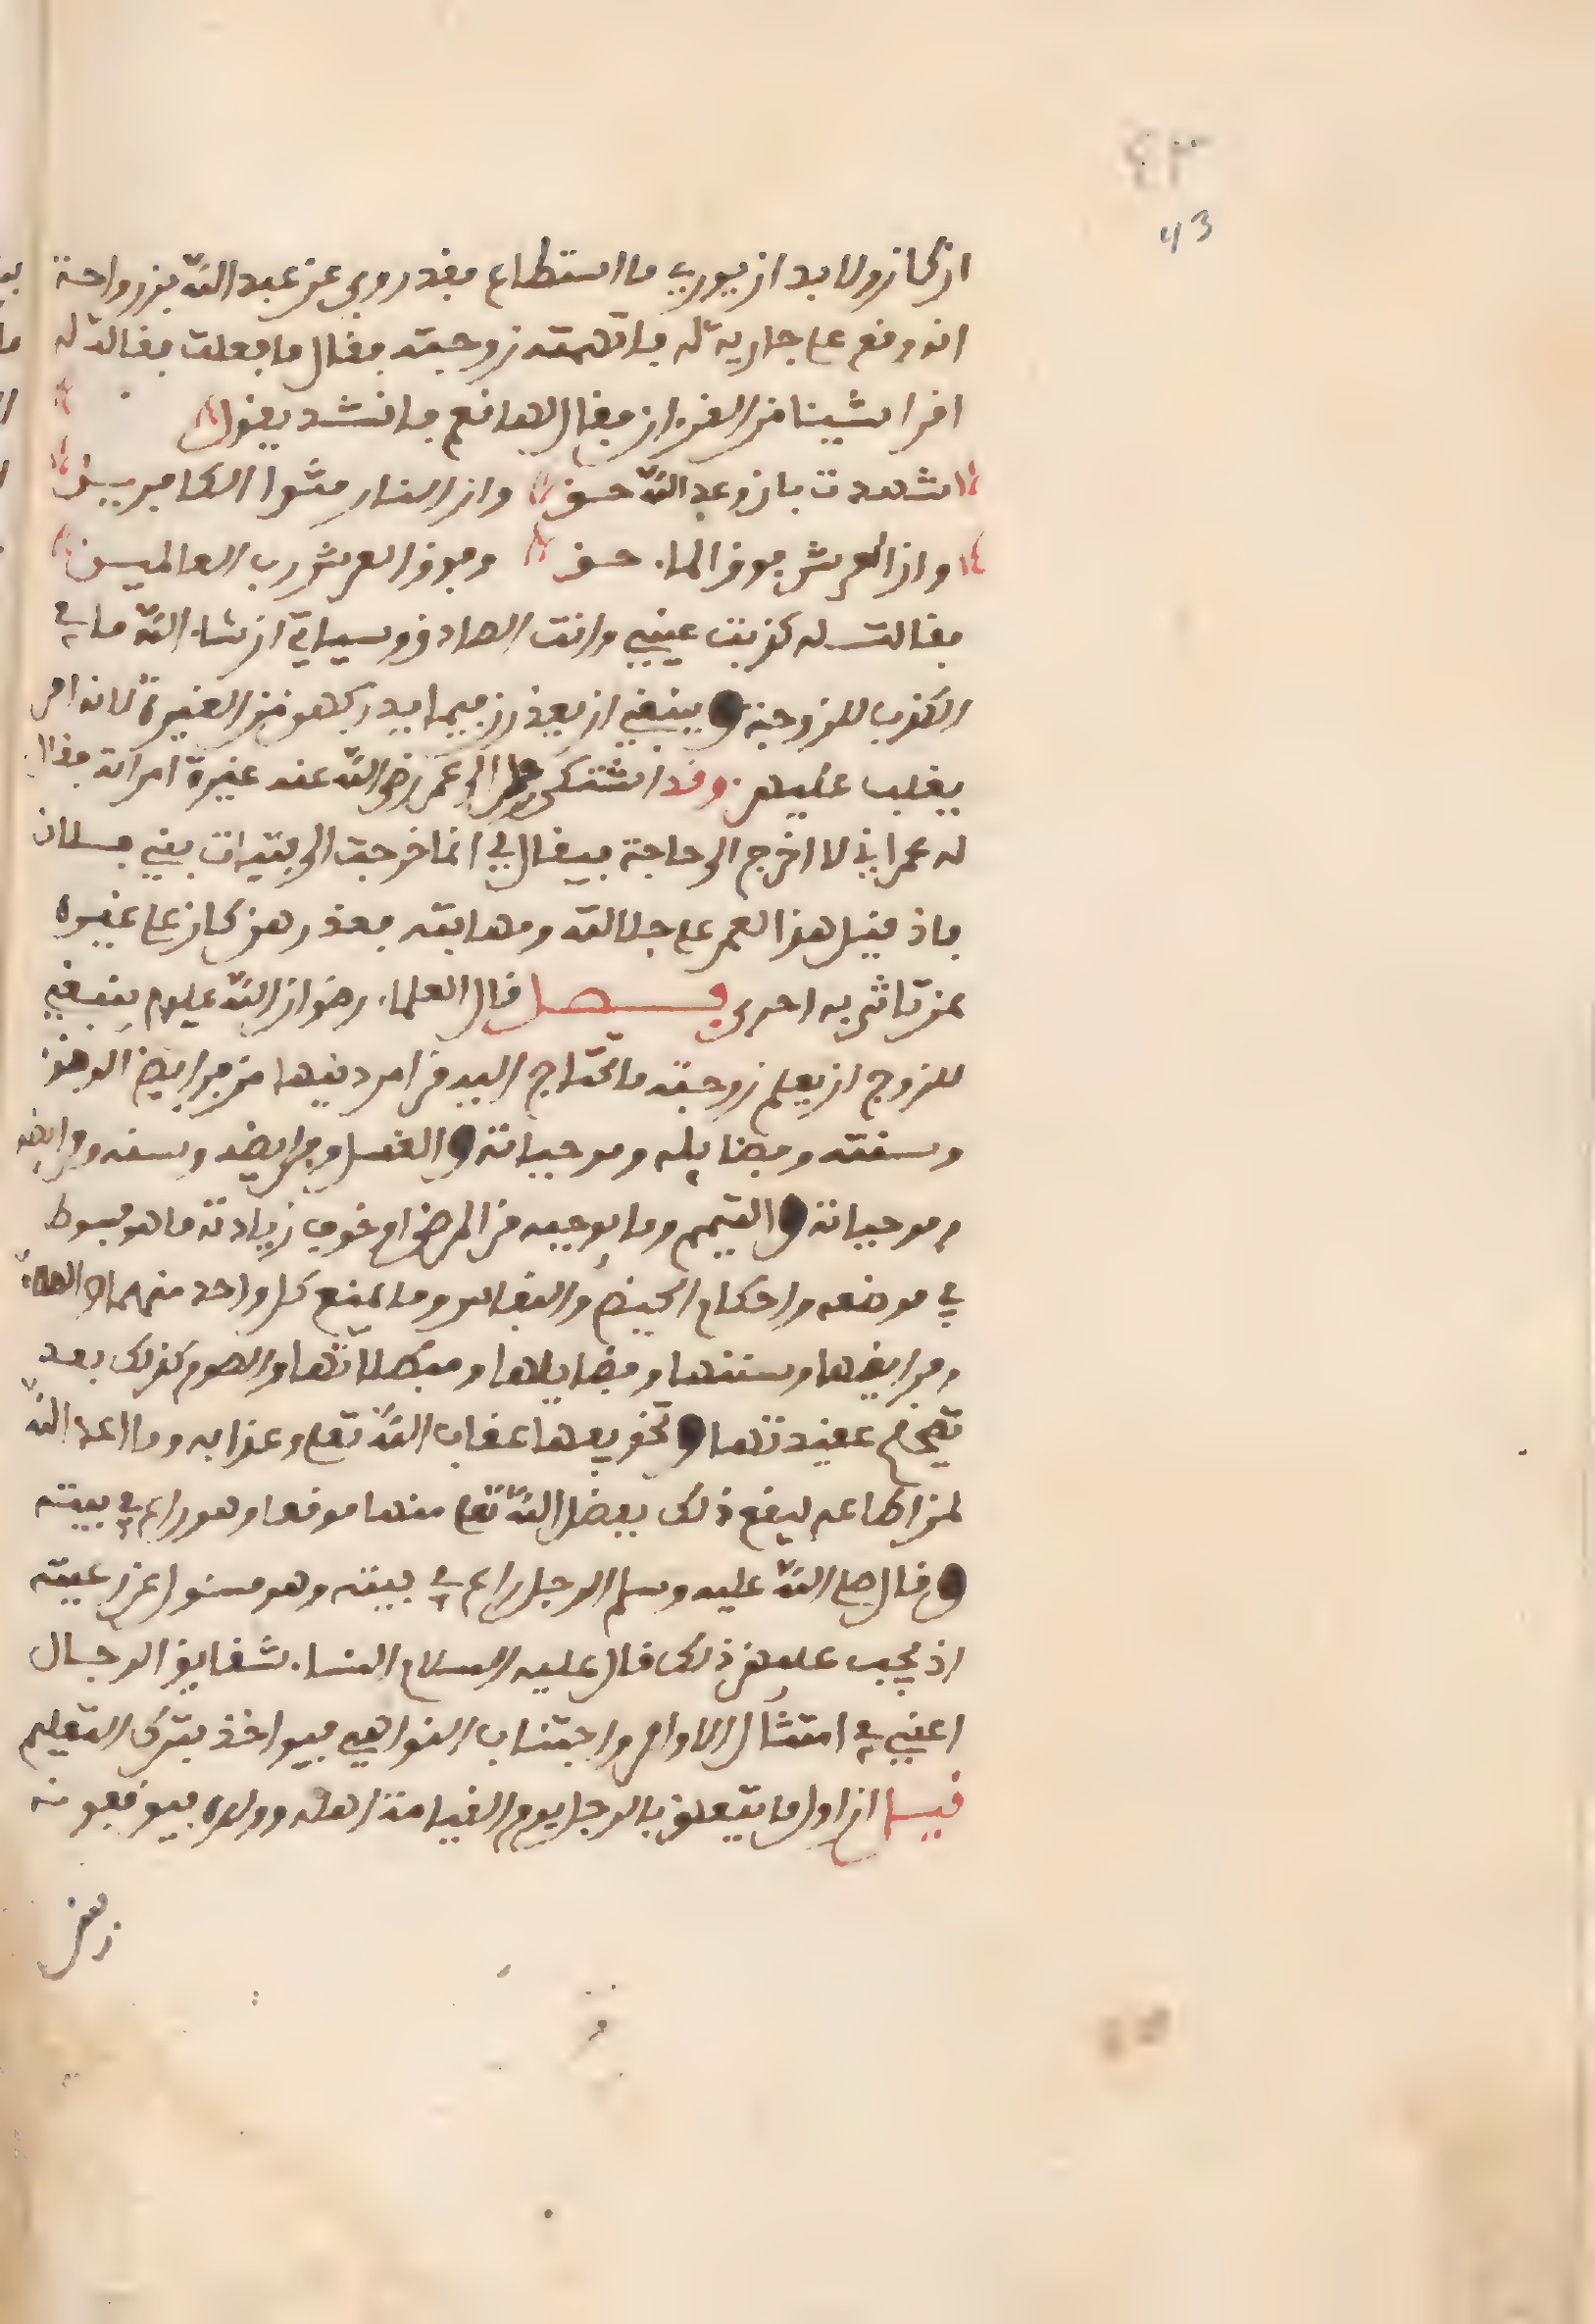 43
ان كان ولا بد ان يوري ما استطاع فقد روي عن عبد الله بن رواحة
انه وقع على جارية له فاتهمته زوجته فقال ما فعلت فقالت له
اقرا شيئا من القرءان فقال لها نعم فانشد يقول
شهدت بان وعد الله حق وان النار مثوا الكافرين
وان العرش فوق الماء حق وفوق العرش رب العالمين
فقالت له كذبت عيني وانت الصادق وسياتي ان شاء الله ما في
الكذب للزوجة وينبغي ان يعذرن فيما يدركهن من الغيرة لانه امر
يغلب عليهن وقد اشتكى رجل الى عمر رضي الله عنه غيرة امراته فقال
له عمر اني لا اخرج الى حاجة فيقال لي انما خرجت الى فتيات بني فلان
فاذ قيل هذا لعمر على جلالته ومهابته فعذرهن كان على غيره
عن تاثيره احرى فصل قال العلماء رضوان الله عليهم ينبغي
للزوج ان يعلم زوجته ما تحتاج اليه من امر دينها من فرايض الوضوء
وسننه وفضايله وموجباته والغسل وفرايضه وسننه وفضايله
وموجباته والتيمم وما يوجبه من المرض او خوف زيادته ما هو مبسوط
في موضعه واحكام الحيض والنفاس وما يمنع كل واحد منهما والصلاة
وفرايضها وسننها وفضايلها ومبطلاتها والصوم كذلك بعد
تصحيح عقيدتها وتخويفها عقاب الله تعلى وعذابه وما اعد الله
لمن اطاعه ليقع ذلك بفضل الله تعلى منها موقعا وهو راع في بيته
وقال صلى الله عليه وسلم الرجل راع في بيته وهو مسئول عن رعيته
اذ يجب عليهن ذلك قال عليه السلام النساء شقايق الرجال
اعني في امتثال الاوامر واجتناب النواهي فيواخذ بترك التعليم
قيل ان اول ما يتعلق بالرجل يوم القيامة اهله وولده فيوقفونه